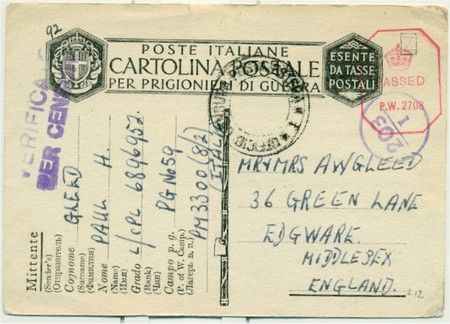 92
POSTE ITALIANE
CARTOLINA POSTALE
PER PRIGIONIERI DI GUERRA
ESENTE
DA TASSE
POSTALI
PASSED
P.W. 2708
203
1
VERIFICA
PER CEN
UFFICIO
MR & MRS A W GLEED
36 GREEN LANE
EDGWARE.
MIDDLESEX
ENGLAND.
212
Mittente
(Sender's)
(Отправитель)
Cognome GLEED
(Surname)
(Фамилия)
Nome PAUL H.
(Name)
(Имя)
Grado L/CPL 6896952
(Rank)
(Чин)
Campo p. g. PG No 59
(P. of W. Camp.)
(Лагерь в. п.)
PM 3300 (8/2)
(ITALY)